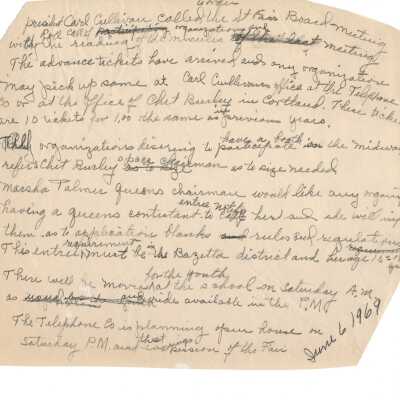 president Carl Cullivan called the St Fair Board meeting
with the reading of the minutes of the last meeting
The advance tickets have arrived and any organization
may pick up same at Carl Cullivans office at the Telephone
Co or at the office of Chet Burley in Cortland. These tickets
are 10 tickets for 1.00 the same as previous years.
organizations desiring to have a booth in the midway
refer Chet Burley space chairman as to size needed
Marsha Palmer queens chairman would like any organi
having a queens contestant to notify her and she will
them as to application blanks and rules and regulations
This entree must be in the Bazetta district and
requirement
There will be movies for the youth at the school on Saturday A.M
as rides available in the P.M
The Telephone Co is planning open house on
Saturday P.M. and that evening of the Fair
June 6 1969